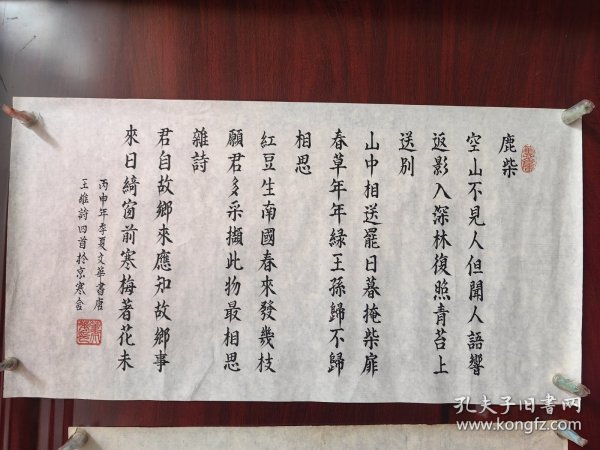 鹿柴
空山不見人但聞人語響
返影入深林復照青苔上
送別
山中相送罷日暮掩柴扉
春草年年緑王孫歸不歸
相思
紅豆生南國春來發幾枝
願君多采擷此物最相思
雜詩
君自故鄉來應知故鄉事
來日綺窗前寒梅著花未
丙申年季夏文華書唐
王維詩四首於京寒舍
孔夫子旧书网
www.kongfz.com